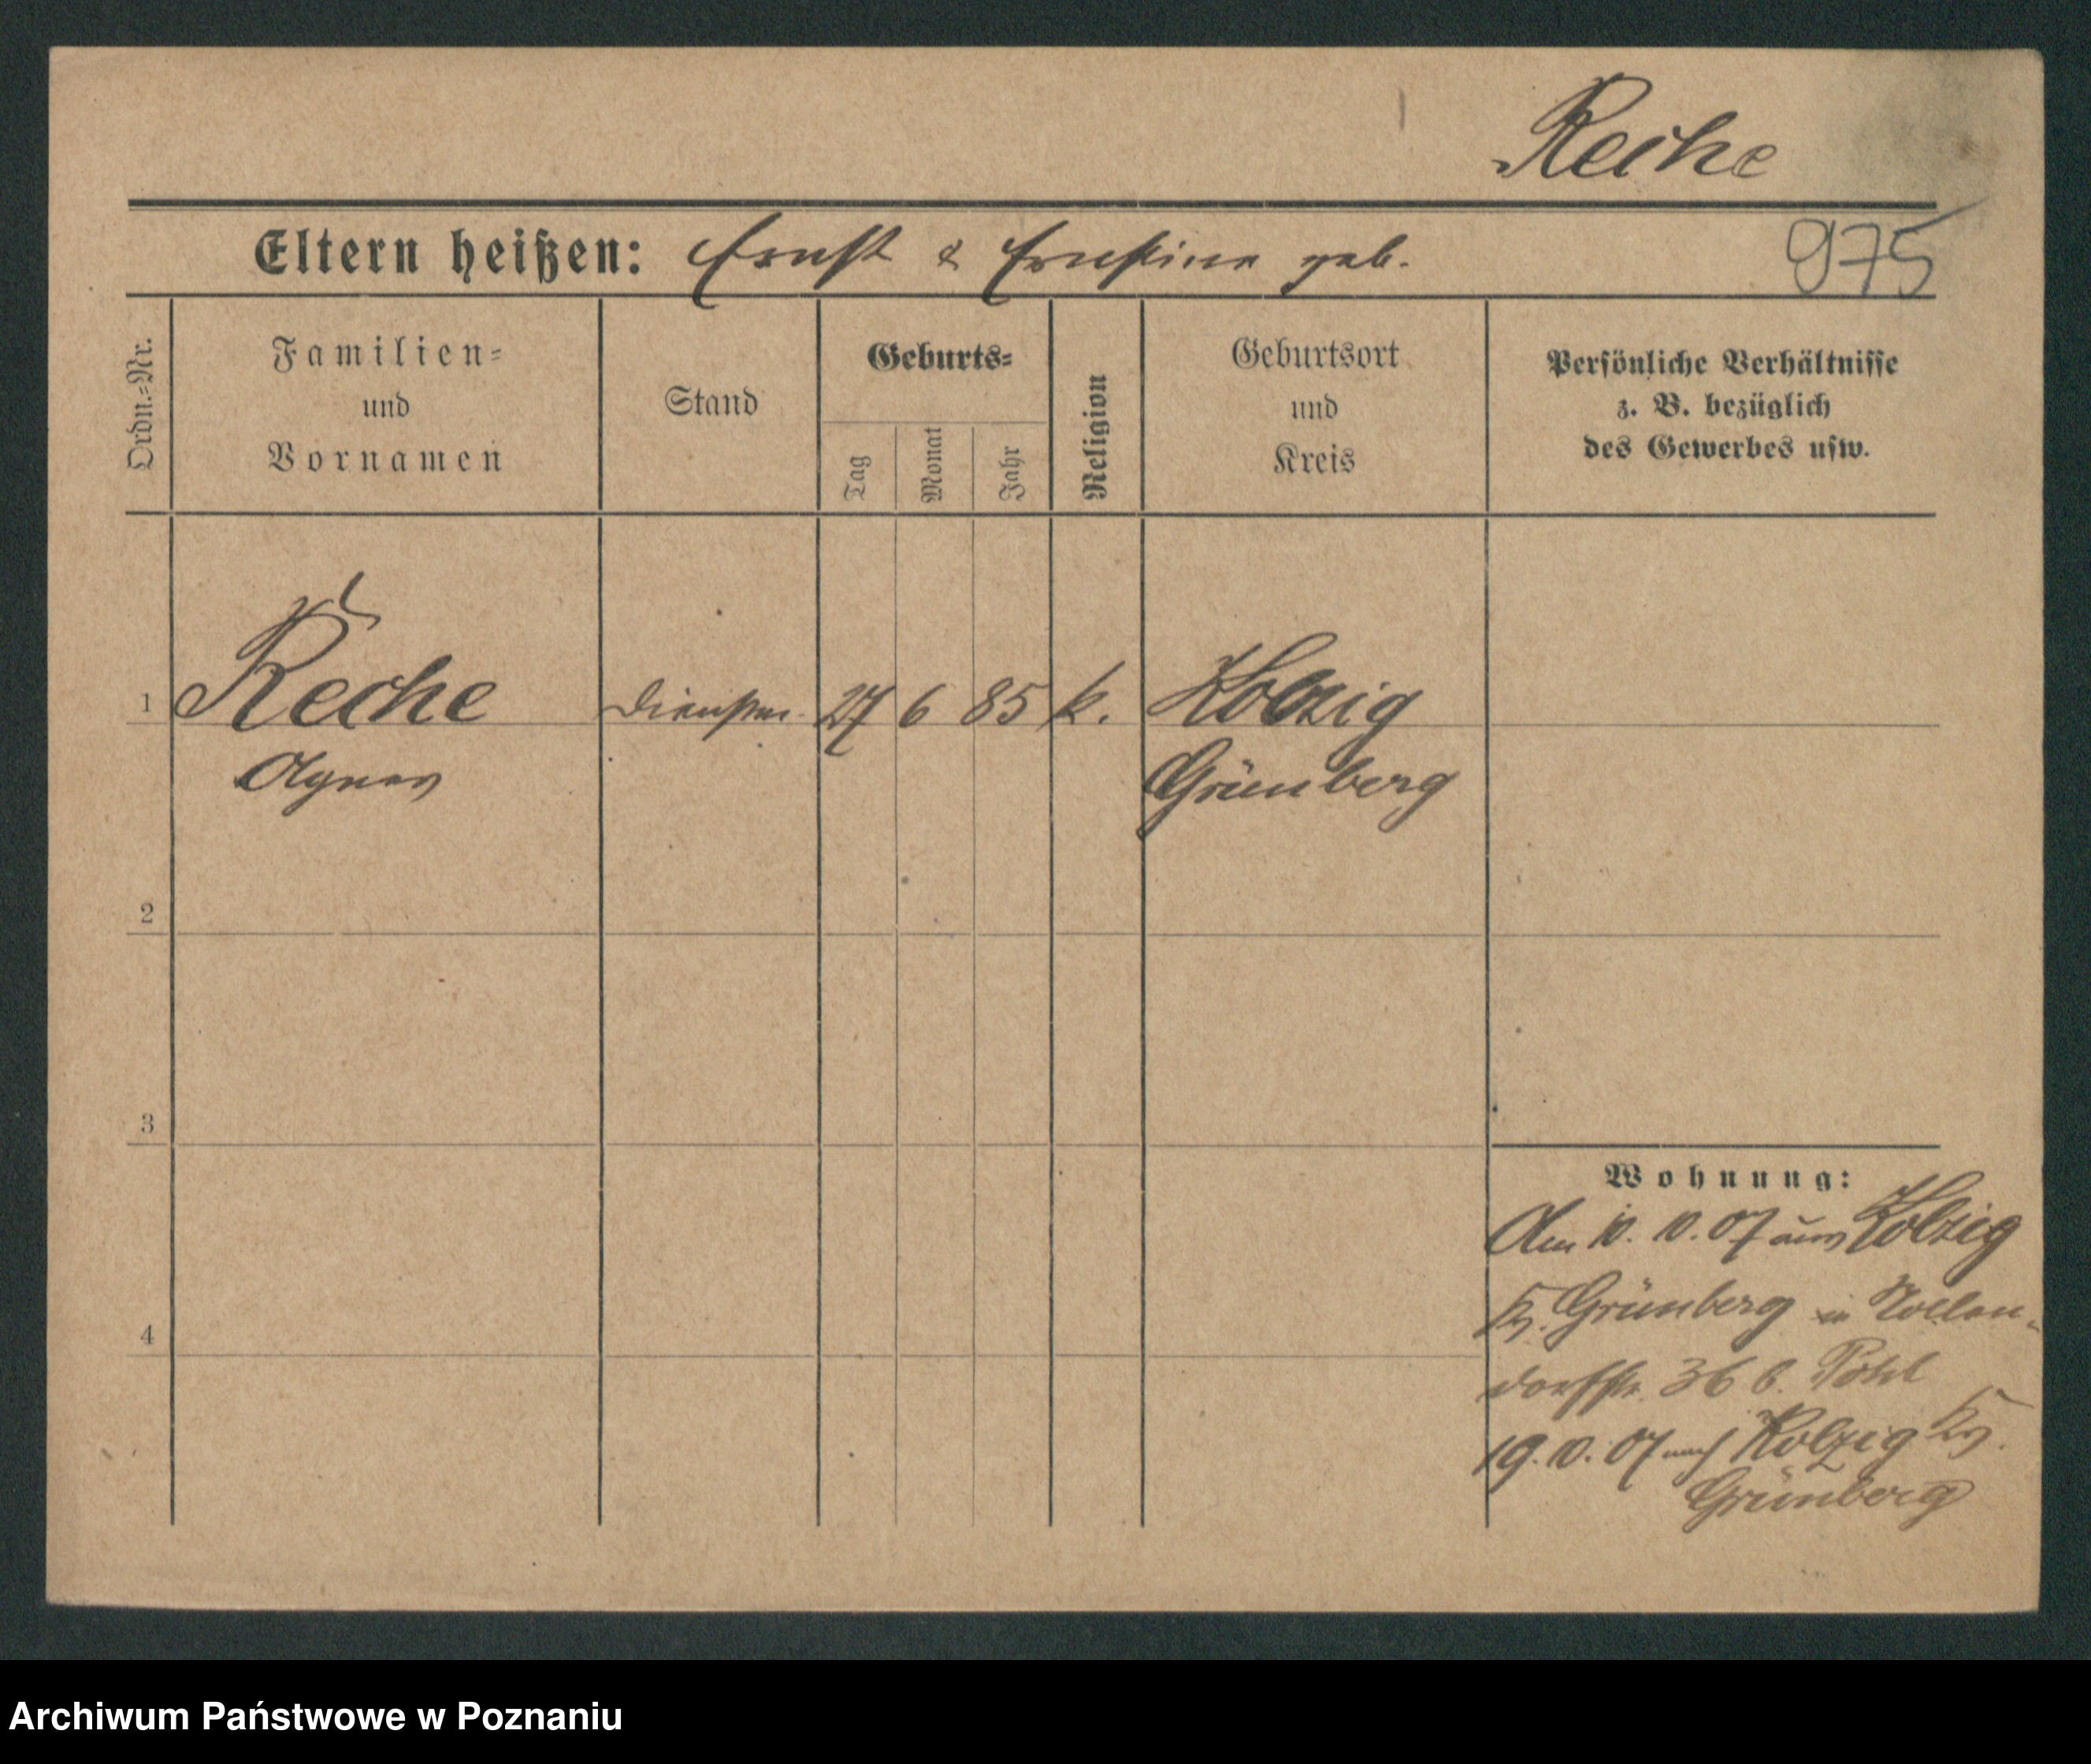 Reiche
Eltern heißen: Ernst & Ernestine geb.
975
Ordn.-Nr.
Familien-
und
Vornamen
Stand
Geburts-
Tag
Monat
Jahr
Religion
Geburtsort
und
Kreis
Persönliche Verhältnisse
z. B. bezüglich
des Gewerbes usw.
1 Reiche Dienstm. 27 6 85 k. Kolzig
Agnes Grünberg
2
3
4
Wohnung:
Am 10. 10. 07 aus Kolzig
Kr. Grünberg in Nollen-
dorfstr. 36 b. Pohl
19. 10. 07 nach Kolzig Kr.
Grünberg
Archiwum Państwowe w Poznaniu